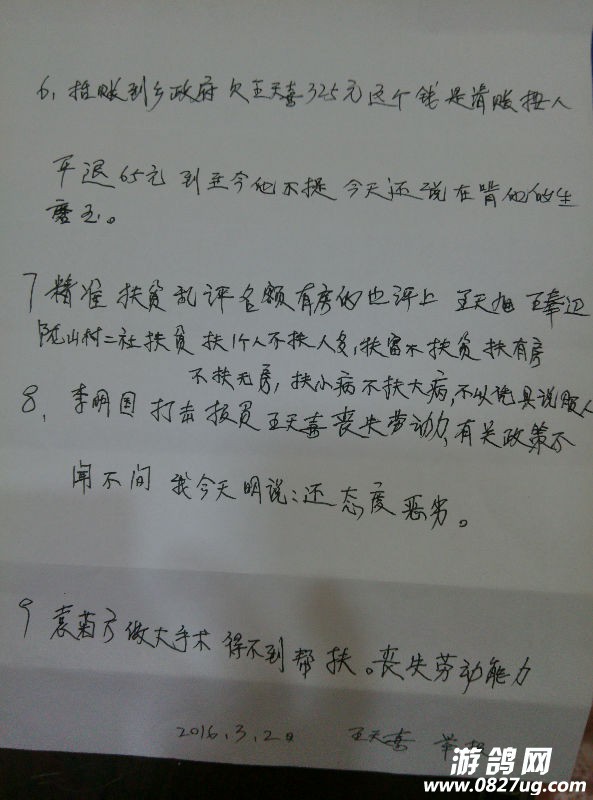 6、结账到乡政府欠王天喜325元这个钱是清账按人
平退65元到至今他不提今天还说在啃他的生
7 精准扶贫乱评名额有房的也评上 王天旭 王奉迎
陇山村二社扶贫扶1个人不扶人多,扶富不扶贫扶有房
不扶无房,扶小病不扶大病,不以说具说服人
8、李明国打击报复王天喜丧失劳动力,有关政策不
闻不问 我今天明说:还态度恶劣。
9 袁菊方做大手术得不到帮扶。丧失劳动能力
2016.3.2日 王天喜 举报
游鸽网
www.0827ug.com